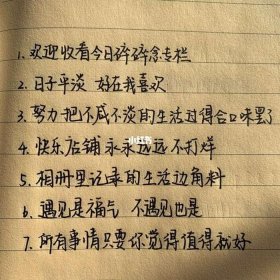 1. 欢迎收看今日碎碎念专栏
2. 日子平淡 好在我喜欢
3. 努力把不咸不淡的生活过得合口味罢了
4. 快乐店铺永永远远不打烊
5. 相册里记录的生活边角料
6. 遇见是福气 不遇见也是
7. 所有事情只要你觉得值得就好
小红书